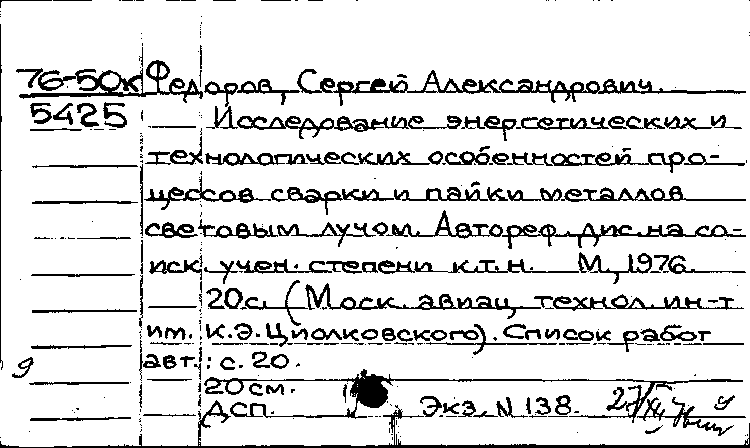 76-50к Федоров, Сергей Александрович.
5425 Исследование энергетических и
технологических особенностей про-
цессов сварки и пайки металлов
световым лучом. Автореф. дис. на со-
иск. учен. степени к.т.н. М., 1976.
20с. (Моск. авиац. технол. ин-т
им. К.Э. Циолковского). Список работ
авт.: с. 20.
20 см.
ДСП. Экз. N 138.